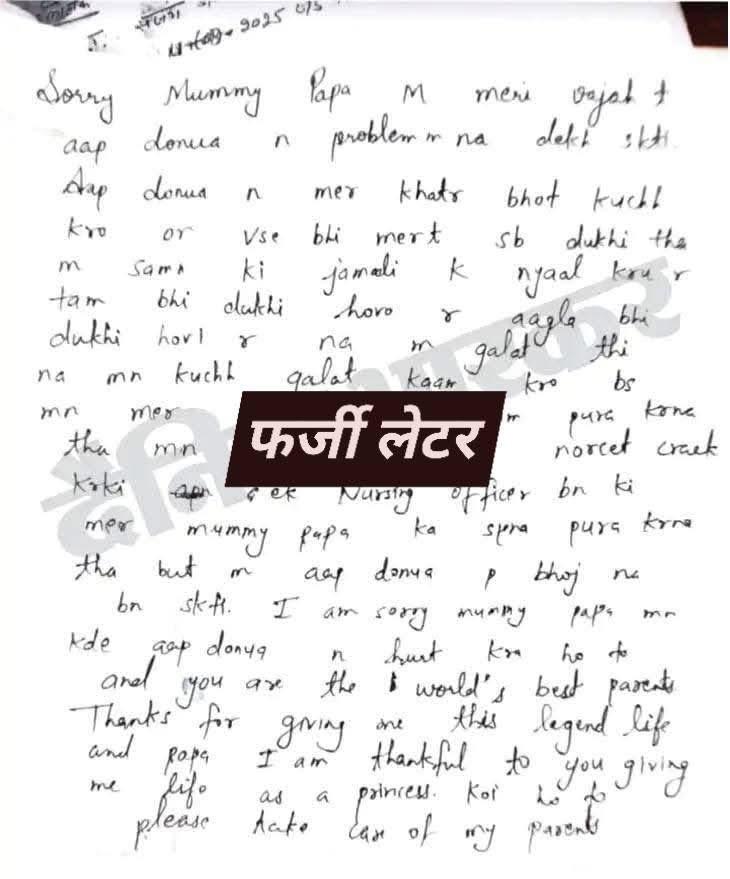 11-09-2025
Sorry Mummy Papa M meri vajah
aap donua n problem m na dekh skti.
Aap donua n mer khatr bhot kuchh
kro or vse bhi mert sb dukhi tha
m samn ki jamali k nyaal kru r
tam bhi dukhi horo r aagla bhi
dukhi hori r na m galat thi
na mn kuchh galat kaam kro bs
mn mer पura krna
tha mn norcet crack
krki ek Nursing officer bn ki
mer mummy papa ka spna pura krna
tha but m aap donya p bhoj na
bn skti. I am sorry mummy papa mn
kde aap donya n hurt kra ho to
and you are the world's best parents
Thanks for giving me this legend life
and papa I am thankful to you giving
me life as a princess. Koi ho to
please take care of my parents
फर्जी लेटर
दैनिक भास्कर